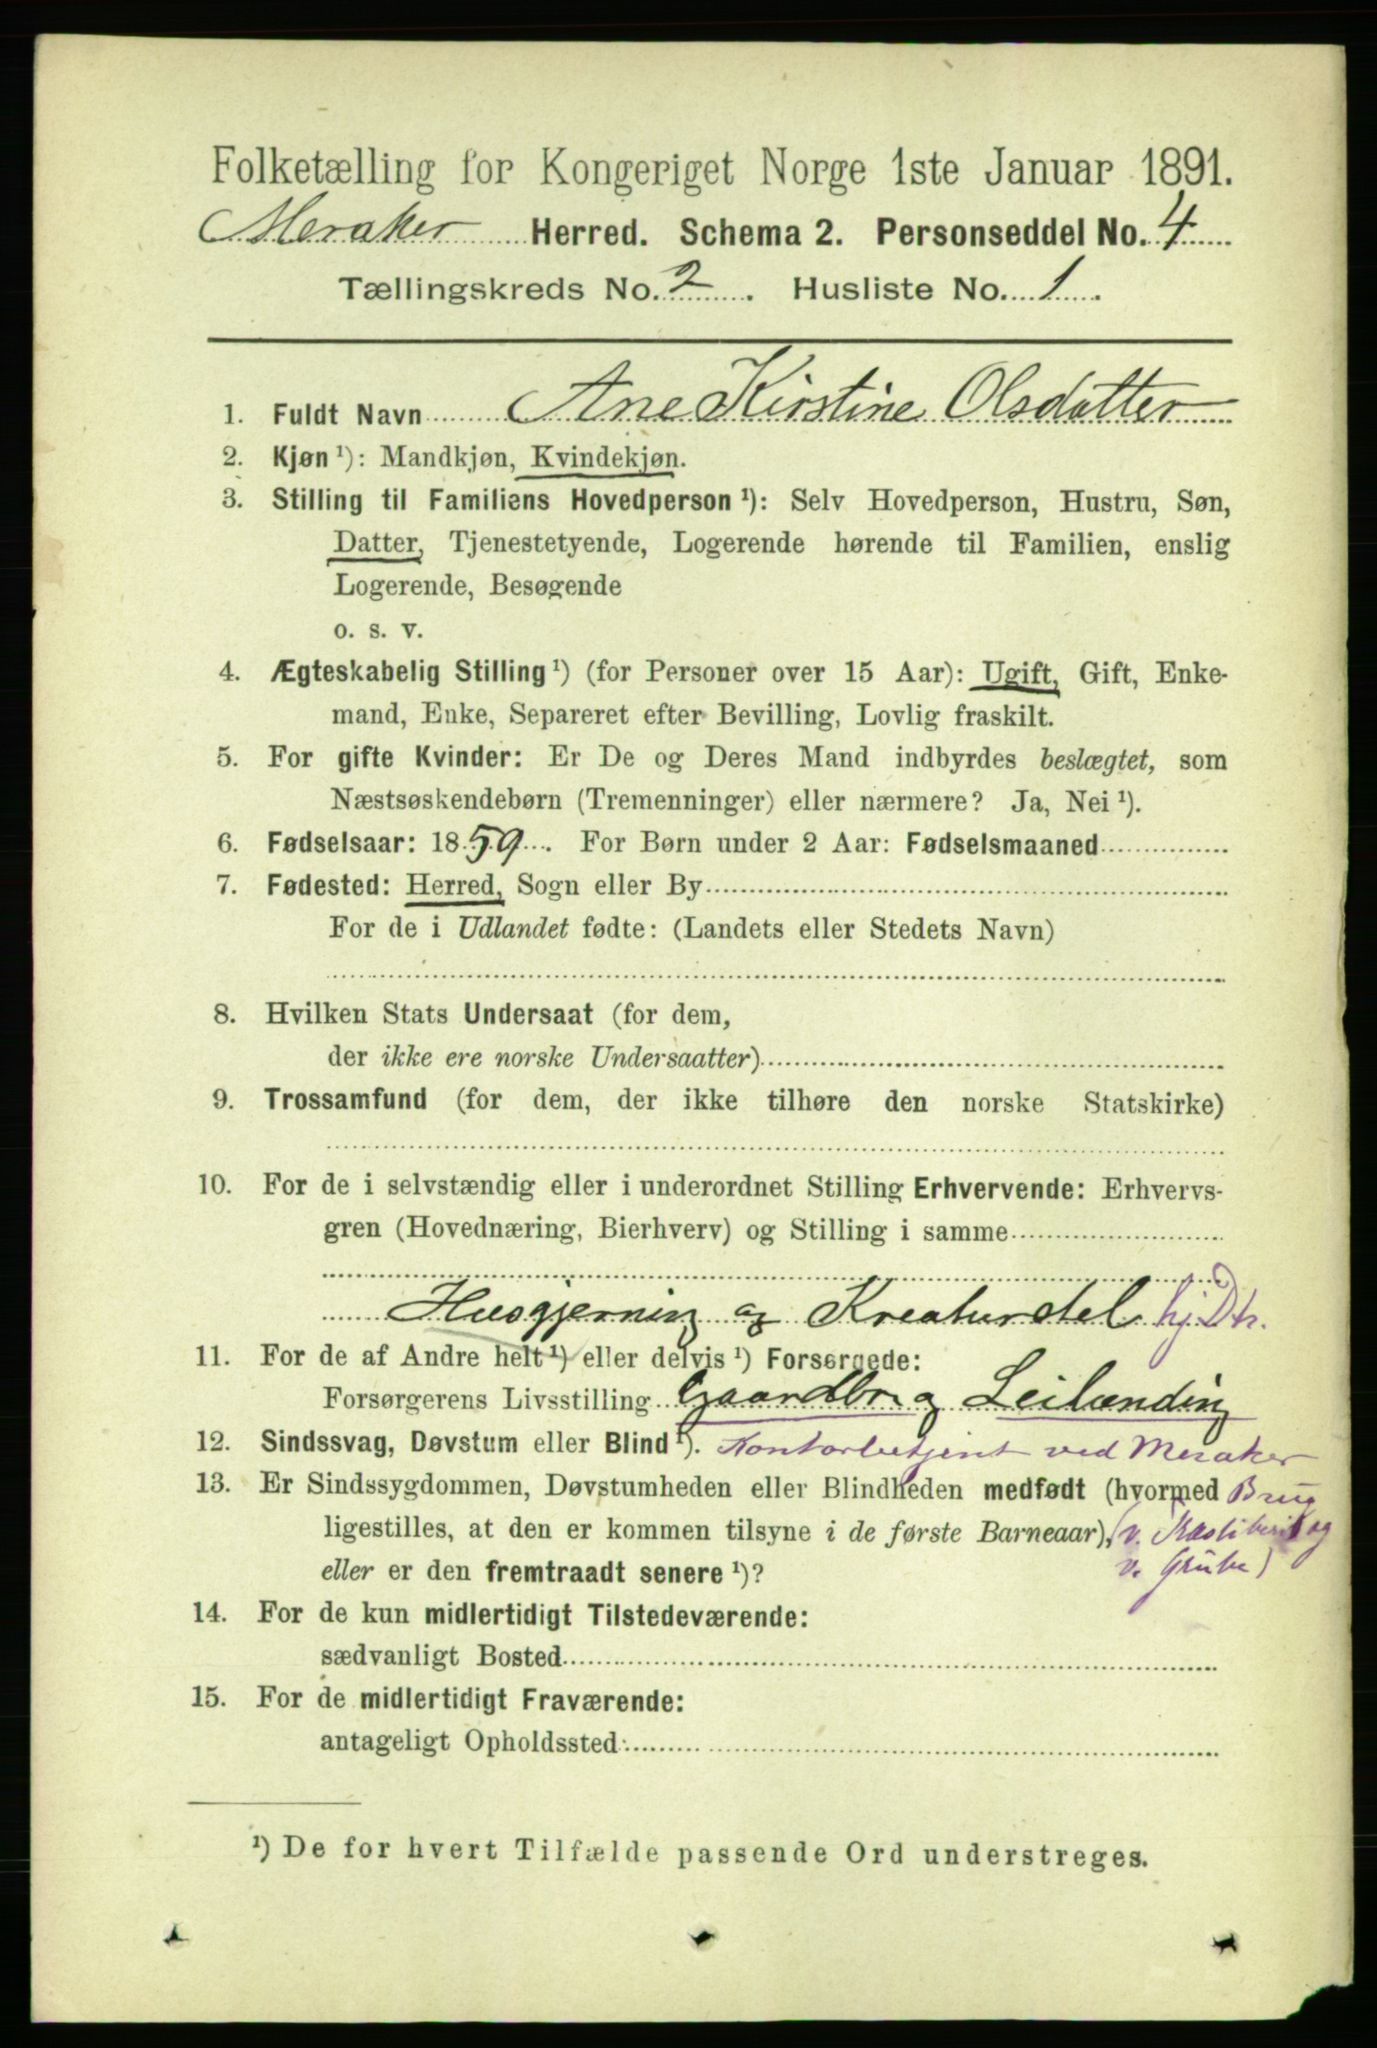 Folketælling for Kongeriget Norge 1ste Januar 1891.
Meraker Herred. Schema 2. Personseddel No. 4
Tællingskreds No. 2. Husliste No. 1.
1. Fuldt Navn Ane Kirstine Olsdatter
2. Kjøn ¹): Mandkjøn, Kvindekjøn.
3. Stilling til Familiens Hovedperson ¹): Selv Hovedperson, Hustru, Søn,
Datter, Tjenestetyende, Logerende hørende til Familien, enslig
Logerende, Besøgende
o. s. v.
4. Ægteskabelig Stilling ¹) (for Personer over 15 Aar): Ugift, Gift, Enke-
mand, Enke, Separeret efter Bevilling, Lovlig fraskilt.
5. For gifte Kvinder: Er De og Deres Mand indbyrdes beslægtet, som
Næstsøskendebørn (Tremenninger) eller nærmere? Ja, Nei ¹).
6. Fødselsaar: 1859. For Børn under 2 Aar: Fødselsmaaned
7. Fødested: Herred, Sogn eller By
For de i Udlandet fødte: (Landets eller Stedets Navn)
8. Hvilken Stats Undersaat (for dem,
der ikke ere norske Undersaatter)
9. Trossamfund (for dem, der ikke tilhøre den norske Statskirke)
10. For de i selvstændig eller i underordnet Stilling Erhvervende: Erhvervs-
gren (Hovednæring, Bierhverv) og Stilling i samme
Husgjerning og Kreaturstel hj. Dtr.
11. For de af Andre helt ¹) eller delvis ¹) Forsørgede:
Forsørgerens Livsstilling Gaardbr. og Leilænding
12. Sindssvag, Døvstum eller Blind ¹). Kontorbetjent ved Meraker
13. Er Sindssygdommen, Døvstumheden eller Blindheden medfødt (hvormed Brug
ligestilles, at den er kommen tilsyne i de første Barneaar), (v. og
eller er den fremtraadt senere ¹)? v. Grube)
14. For de kun midlertidigt Tilstedeværende:
sædvanligt Bosted
15. For de midlertidigt Fraværende:
antageligt Opholdssted
¹) De for hvert Tilfælde passende Ord understreges.